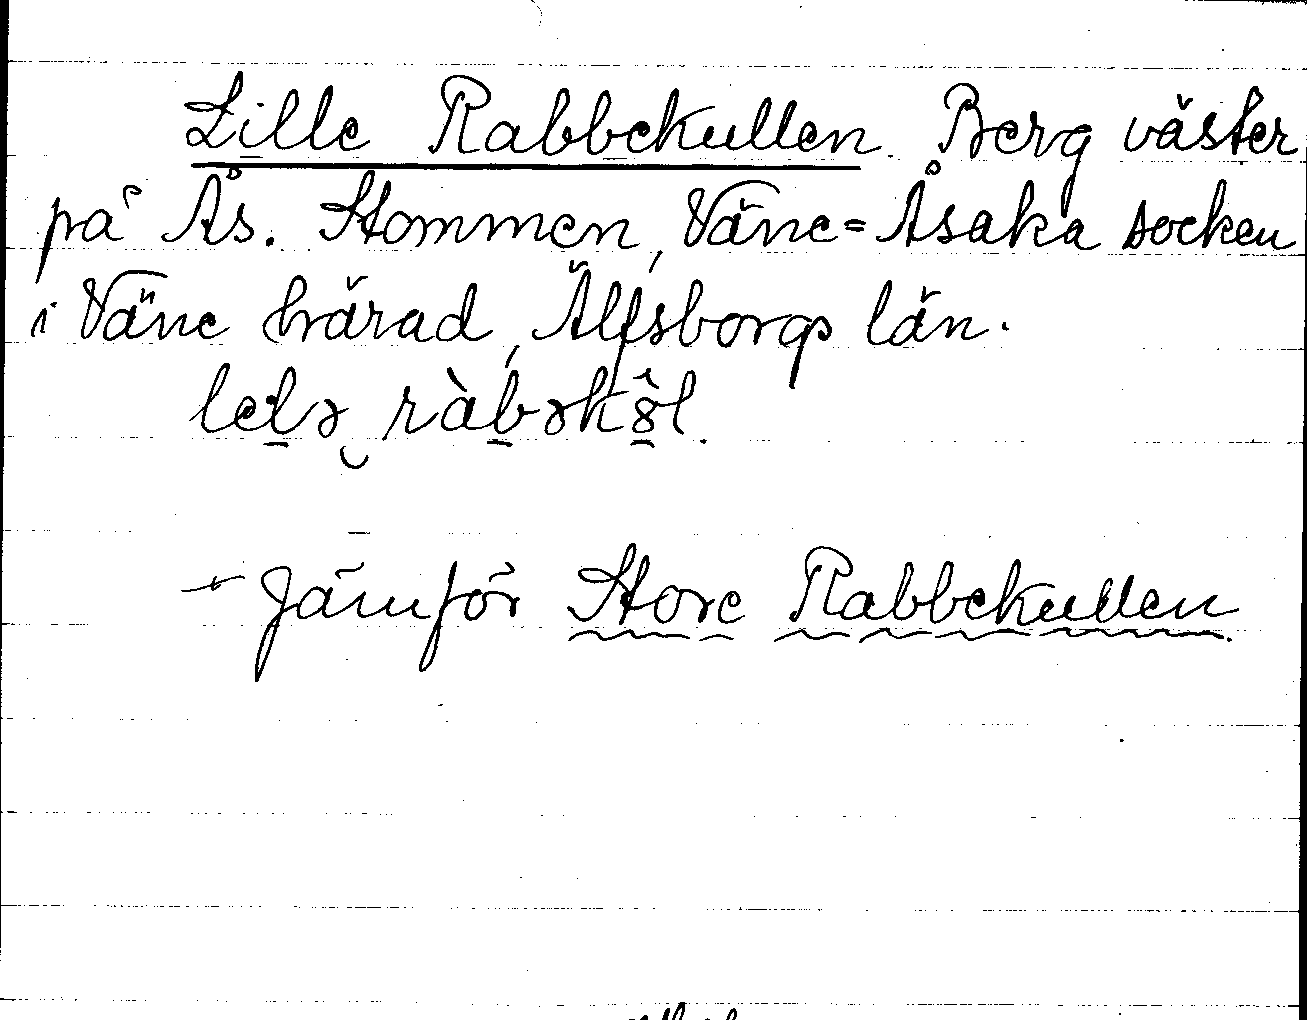 Lille Rabbekullen. Berg väster
på Ås. Stommen, Väne=Åsaka socken
i Väne härad, Älfsborgs län.
lelə ràbəkôl.
Jämför Store Rabbekullen.